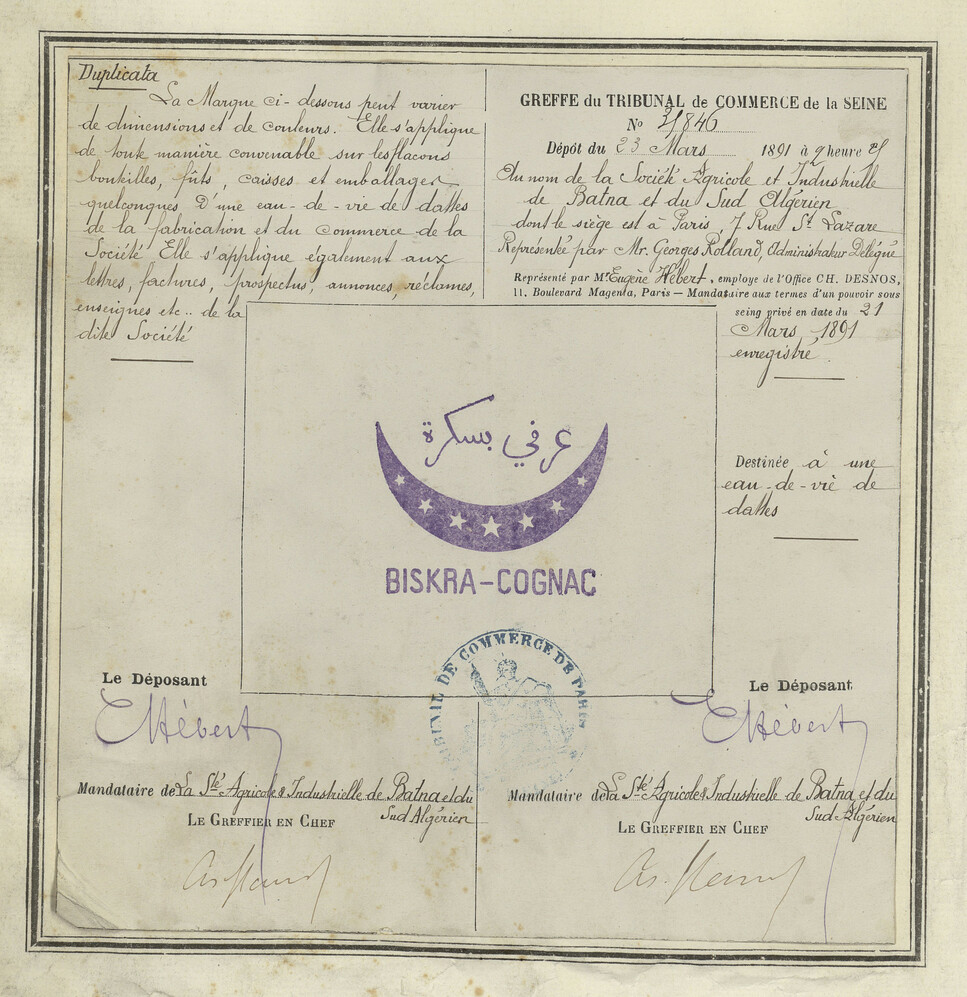 Duplicata
La Marque ci-dessous peut varier
de dimensions et de couleurs. Elle s'applique
de toute manière convenable sur les flacons
bouteilles, fûts, caisses et emballages
quelconques D'une eau-de-vie de dattes
de la fabrication et du Commerce de la
Société Elle s'applique également aux
lettres, factures, prospectus, annonces, réclames,
enseignes etc.. de la
dite Société
GREFFE du TRIBUNAL de COMMERCE de la SEINE
No 31846
Dépôt du 23 Mars 1891 à 2 heure
Au nom de la Société Agricole et Industrielle
de Batna et du Sud Algérien
dont le siège est à Paris, 7 Rue St Lazare
Représentée par Mr. Georges Rolland, Administrateur Délégué
Représenté par Mr Eugène Hébert, employe de l'Office CH. DESNOS,
11, Boulevard Magenta, Paris — Mandataire aux termes d'un pouvoir sous
seing privé en date du 21
Mars, 1891
enregistré
عرفي بسكرة
BISKRA-COGNAC
Destinée à une
eau-de-vie de
dattes
TRIBUNAL DE COMMERCE DE PARIS
Le Déposant
EHébert
Mandataire de La Sté Agricole & Industrielle de Batna et du
Sud Algérien
LE GREFFIER EN CHEF
Le Déposant
EHébert
Mandataire de La Sté Agricole & Industrielle de Batna et du
Sud Algérien
LE GREFFIER EN CHEF